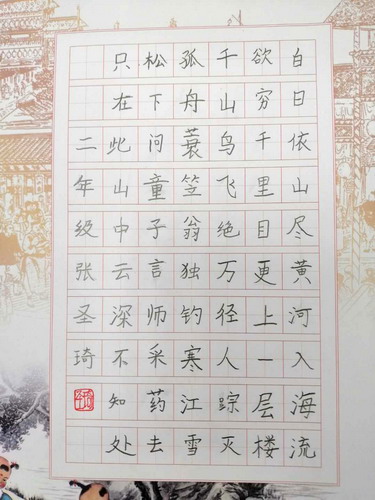 白日依山尽黄河入海流
欲穷千里目更上一层楼
千山鸟飞绝万径人踪灭
孤舟蓑笠翁独钓寒江雪
松下问童子言师采药去
只在此山中云深不知处
二年级张圣琦